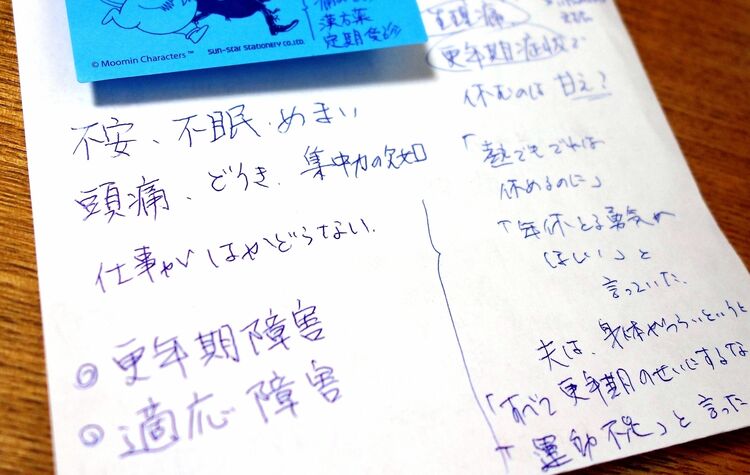 漢方薬
定期受診
© Moomin Characters™
sun-star stationery co.,ltd.
不安、不眠.めまい
頭痛、どうき.集中力の欠如
仕事がはかどらない.
◎更年期障害
◎適応障害
頭痛
更年期症状で
休むのは甘え?
「熱でもでれば
休めるのに」
「年休とる勇気が
ほしい」と
言っていた.
夫は、身体がつらいというと
「すべて更年期のせいにするな
「運動不足」と言った